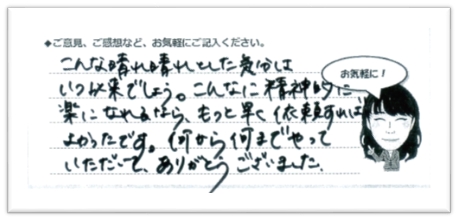 ◆ご意見、ご感想など、お気軽にご記入ください。
こんな晴れ晴れとした気分は
いつ以来でしょう。こんなに精神的に
楽になれるなら、もっと早く依頼すれば
よかったです。何から何までやって
いただいて、ありがとうございました。
お気軽に!